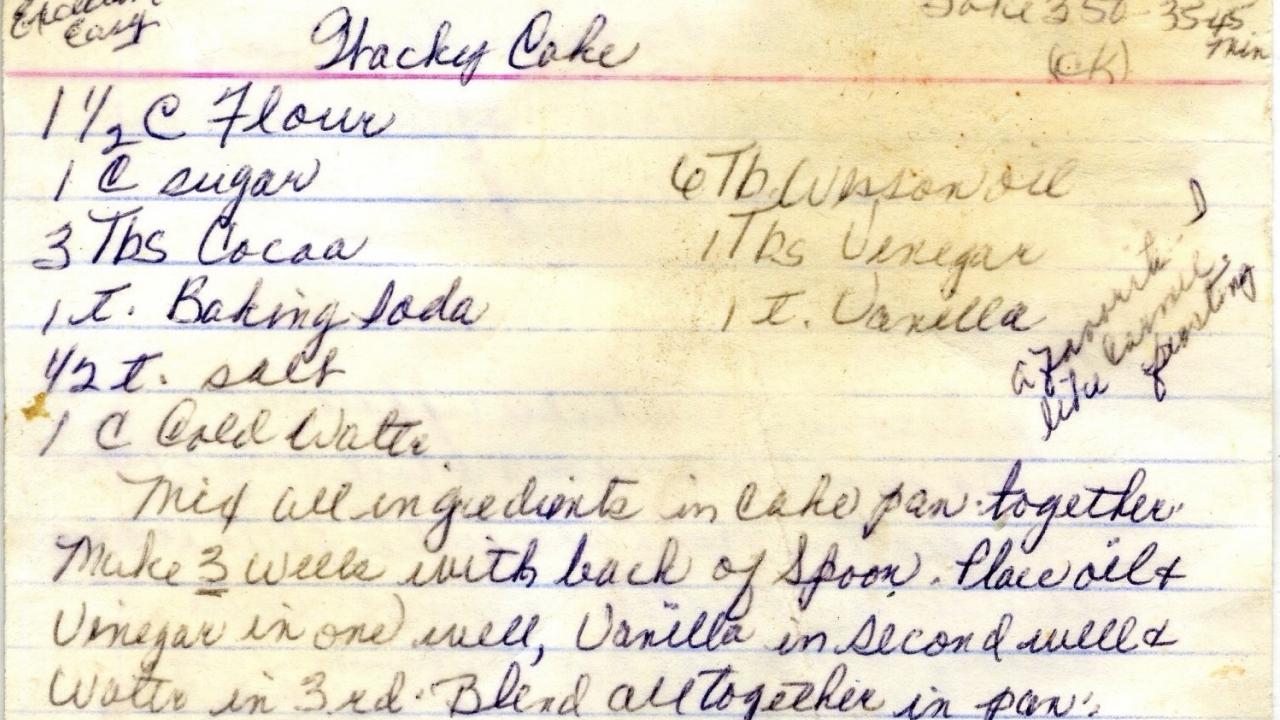 Excellent
Easy
Wacky Cake
Bake 350 - 35-45
Min
(CK)
1 1/2 C Flour
1 C sugar
3 Tbs Cocoa
1 t. Baking Soda
1/2 t. salt
1 C Cold Water
6 Tb. Wesson oil
1 Tbs Vinegar
1 t. Vanilla
a favorite
like
frosting
Mix all ingredients in cake pan together.
Make 3 wells with back of spoon. Place oil &
Vinegar in one well, Vanilla in second well &
Water in 3rd. Blend all together in pan.